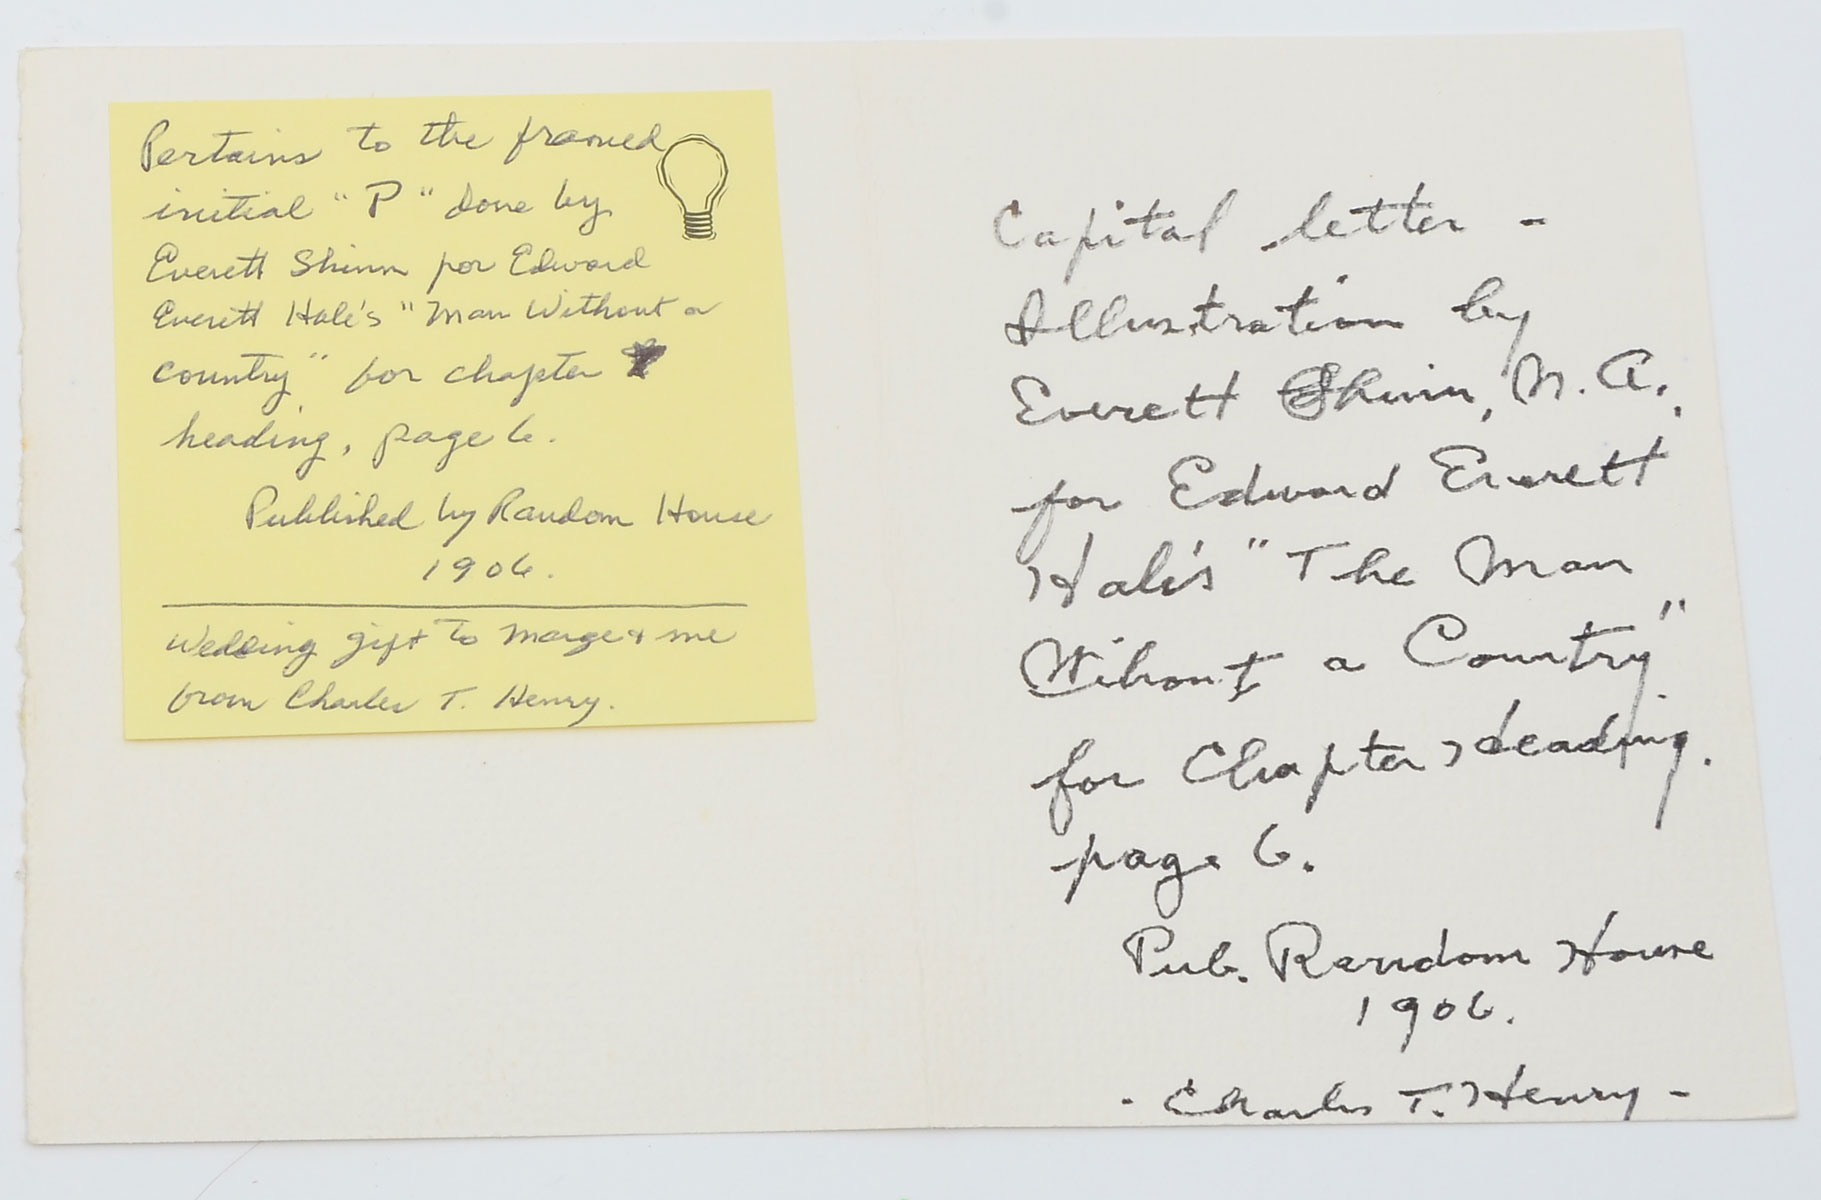 Pertains to the framed
initial "P" done by
Everett Shinn for Edward
Everett Hale's "Man Without a
country" for chapter
heading, page 6.
Published by Random House
1906.
Wedding gift to Marge & me
from Charles T. Henry.
Capital letter -
Illustration by
Everett Shinn, N. A.,
for Edward Everett
Hale's "The Man
Without a Country"
for Chapter Heading.
page 6.
Pub. Random House
1906.
- Charles T. Henry -